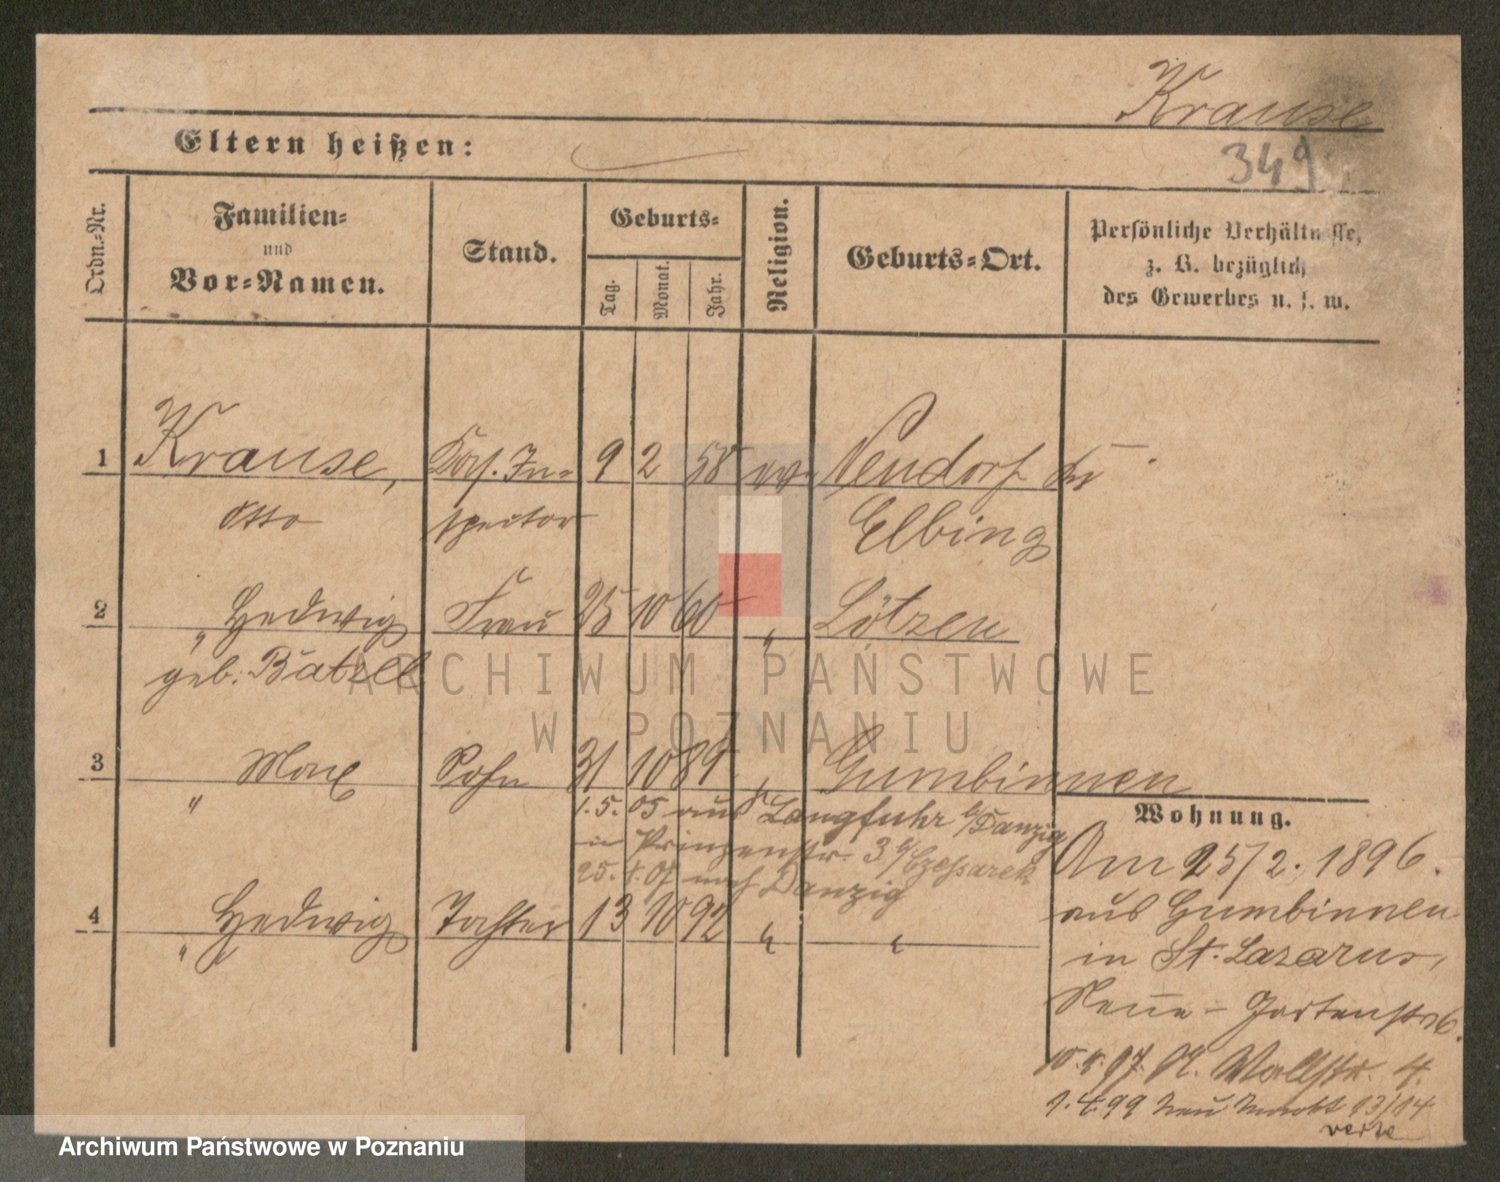 Krause
Eltern heißen:
349
Ordn.-Nr.
Familien-
und
Vor-Namen.
Stand.
Geburts-
Tag.
Monat.
Jahr.
Religion.
Geburts-Ort.
Persönliche Verhältnisse,
z. B. bezüglich
des Gewerbes u. s. w.
1 Krause, In- 9 2 58 ev. Neudorf
Otto spector Elbing
2 " Hedwig Frau 25 10 60 " Lötzen
geb. Batzell
3 " Max Sohn 31 10 89 " Gumbinnen
1.5.05 aus Langfuhr b/Danzig
in Prinzenstr. 3 b/
nach Danzig
4 " Hedwig Tochter 13 10 92 " "
Wohnung.
Am 25/2. 1896.
aus Gumbinnen
in St. Lazarus,
Neue-Gartenstr 6.
Wallstr. 4.
1.4.99 13/14
verte
ARCHIWUM PAŃSTWOWE
W POZNANIU
Archiwum Państwowe w Poznaniu